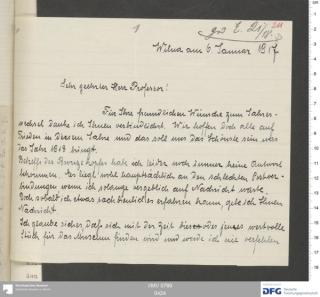 1
ges. E. 21/IV.
211
Wilna am 6 Januar 1917
Sehr geehrter Herr Professor!
Für Ihre freundlichen Wünsche zum Jahres-
wechsel danke ich Ihnen verbindlichst. Wir hoffen doch alle auf
Frieden in diesem Jahre und das soll uns das Schönste sein was
das Jahr 1918 bringt.
Betreffs der habe ich leider noch immer keine Antwort
bekommen. Es liegt wohl hauptsächlich an den schlechten Postver-
bindungen wenn ich solange vergeblich auf Nachricht warte.
Doch sobald ich etwas zuverlässiges erfahren kann, gebe ich Ihnen
Nachricht.
Ich glaube sicher, daß sich mit der Zeit dieses oder jenes wertvolle
Stück für das Museum finden wird und werde ich nie verfehlen
DFG Deutsche Forschungsgemeinschaft